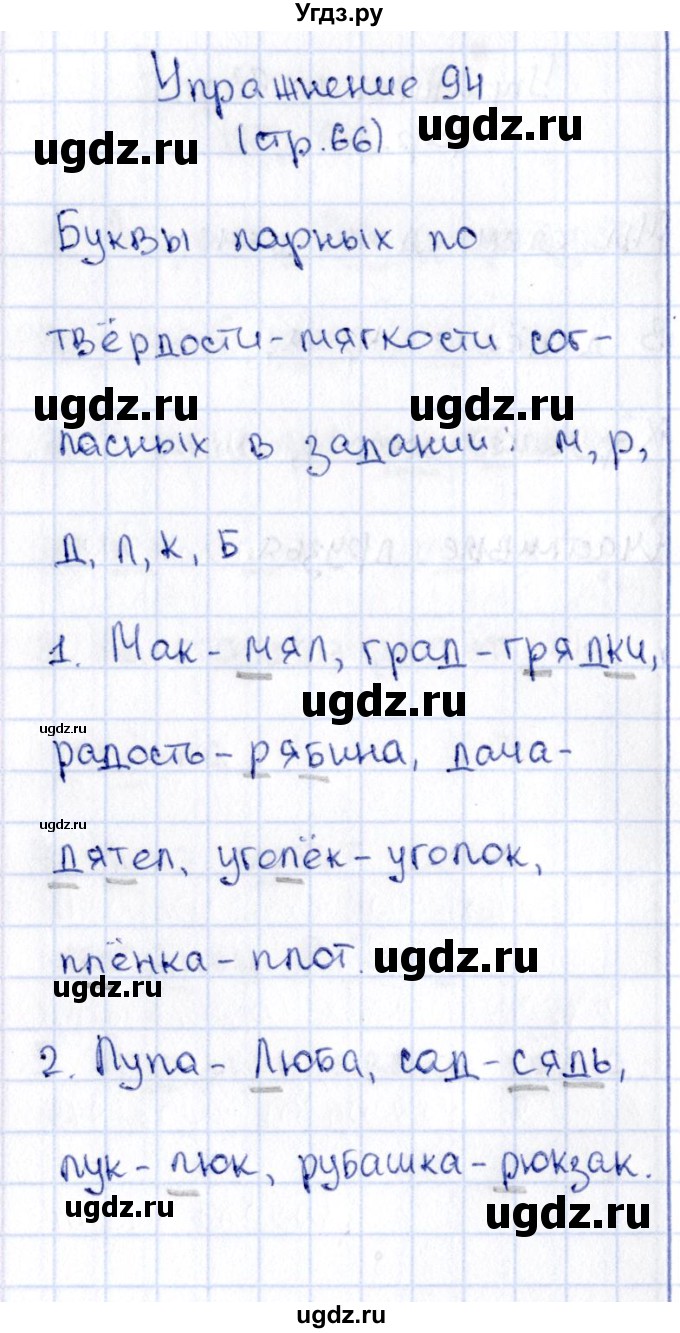 Угдз.ру
Упражнение 94
ugdz.ru
(стр.66)
ugdz.ru
Буквы парных по
твёрдости-мягкости сог-
ugdz.ru
ugdz.ru
ласных в задании: м, р,
д, л, к, б
1. Мак - мял, град - грядки,
ugdz.ru
ugdz.ru
радость - рябина, дача -
ugdz.ru
дятел, уголёк - уголок,
плёнка - плот.
ugdz.ru
ugdz.ru
2. Лупа - Люба, сад - сядь,
лук - люк, рубашка - рюкзак.
ugdz.ru
ugdz.ru
ugdz.ru